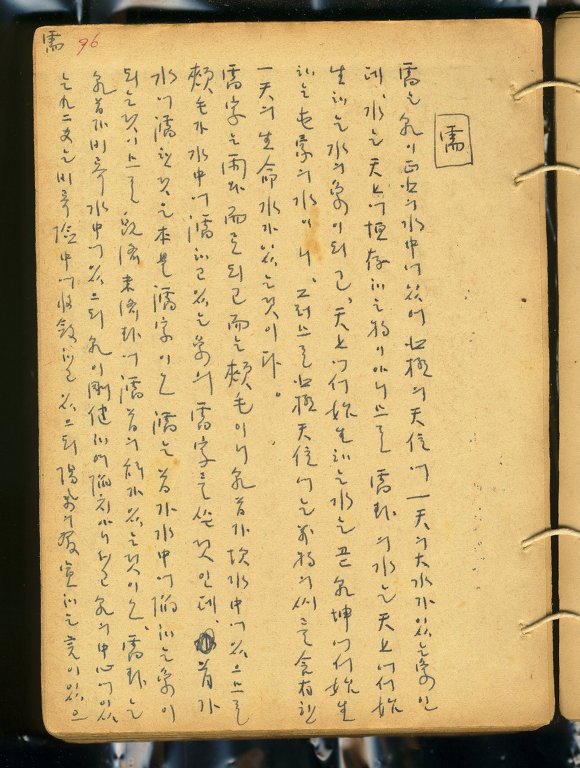 需 96
需
需는 乾이 正北의 水中에 있어 北極의 天位에 一天의 大水가 있는 象인
데, 水는 天上에 恒存하는 物이 아니므로 需卦의 水는 天上에서 始
生하는 水의 象이 되고, 天上에서 始生하는 水는 곧 乾坤에서 始生
하는 屯蒙의 水이니, 그러므로 北極天位에는 萬物의 씨를 含有한
一天의 生命水가 있는 것이다。
需字는 雨와 而로 되고 而는 頰毛이니 乾首가 坎水中에 있으므로
頰毛가 水中에 濡하고 있는 象의 需字를 쓴 것인데, 首가
水에 濡한 것은 本是 濡字이오 濡는 首가 水中에 陷하는 象이
되는 것이므로 旣濟未濟卦에 濡首의 辭가 있는 것이오, 需卦는
乾首가 비록 水中에 있으되 乾이 剛健하여 陷치 아니하고 乾의 中心에 있
는 九二爻는 비록 險中에 收斂하고 있으되 陽氣의 發宣하는 言이 있으